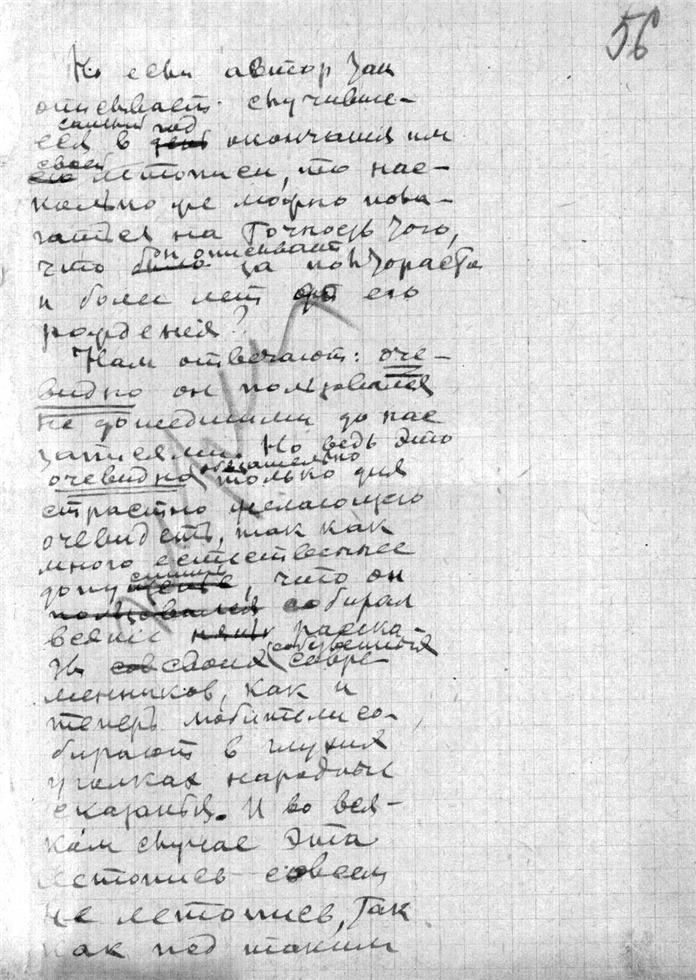 56
Но если автор так
описывает случивше-
еся в самый год окончания им
своей летописи, то нас-
колько же можно пола-
гаться на точность того,
что он описывает за полтораста
и более лет до его
рождения?
Нам отвечают: оче-
видно он пользовался
не дошедшими до нас
записями. Но ведь это
очевидно обязательно только для
страстно желающего
очевидеть, так как
много естественнее
допустить, что он
собирал
всякие расска-
зы своих собственных совре-
менников, как и
теперь любители со-
бирают в глухих
уголках народные
сказания. И во вся-
ком случае эта
летопись совсем
не летопись, так
как под таким